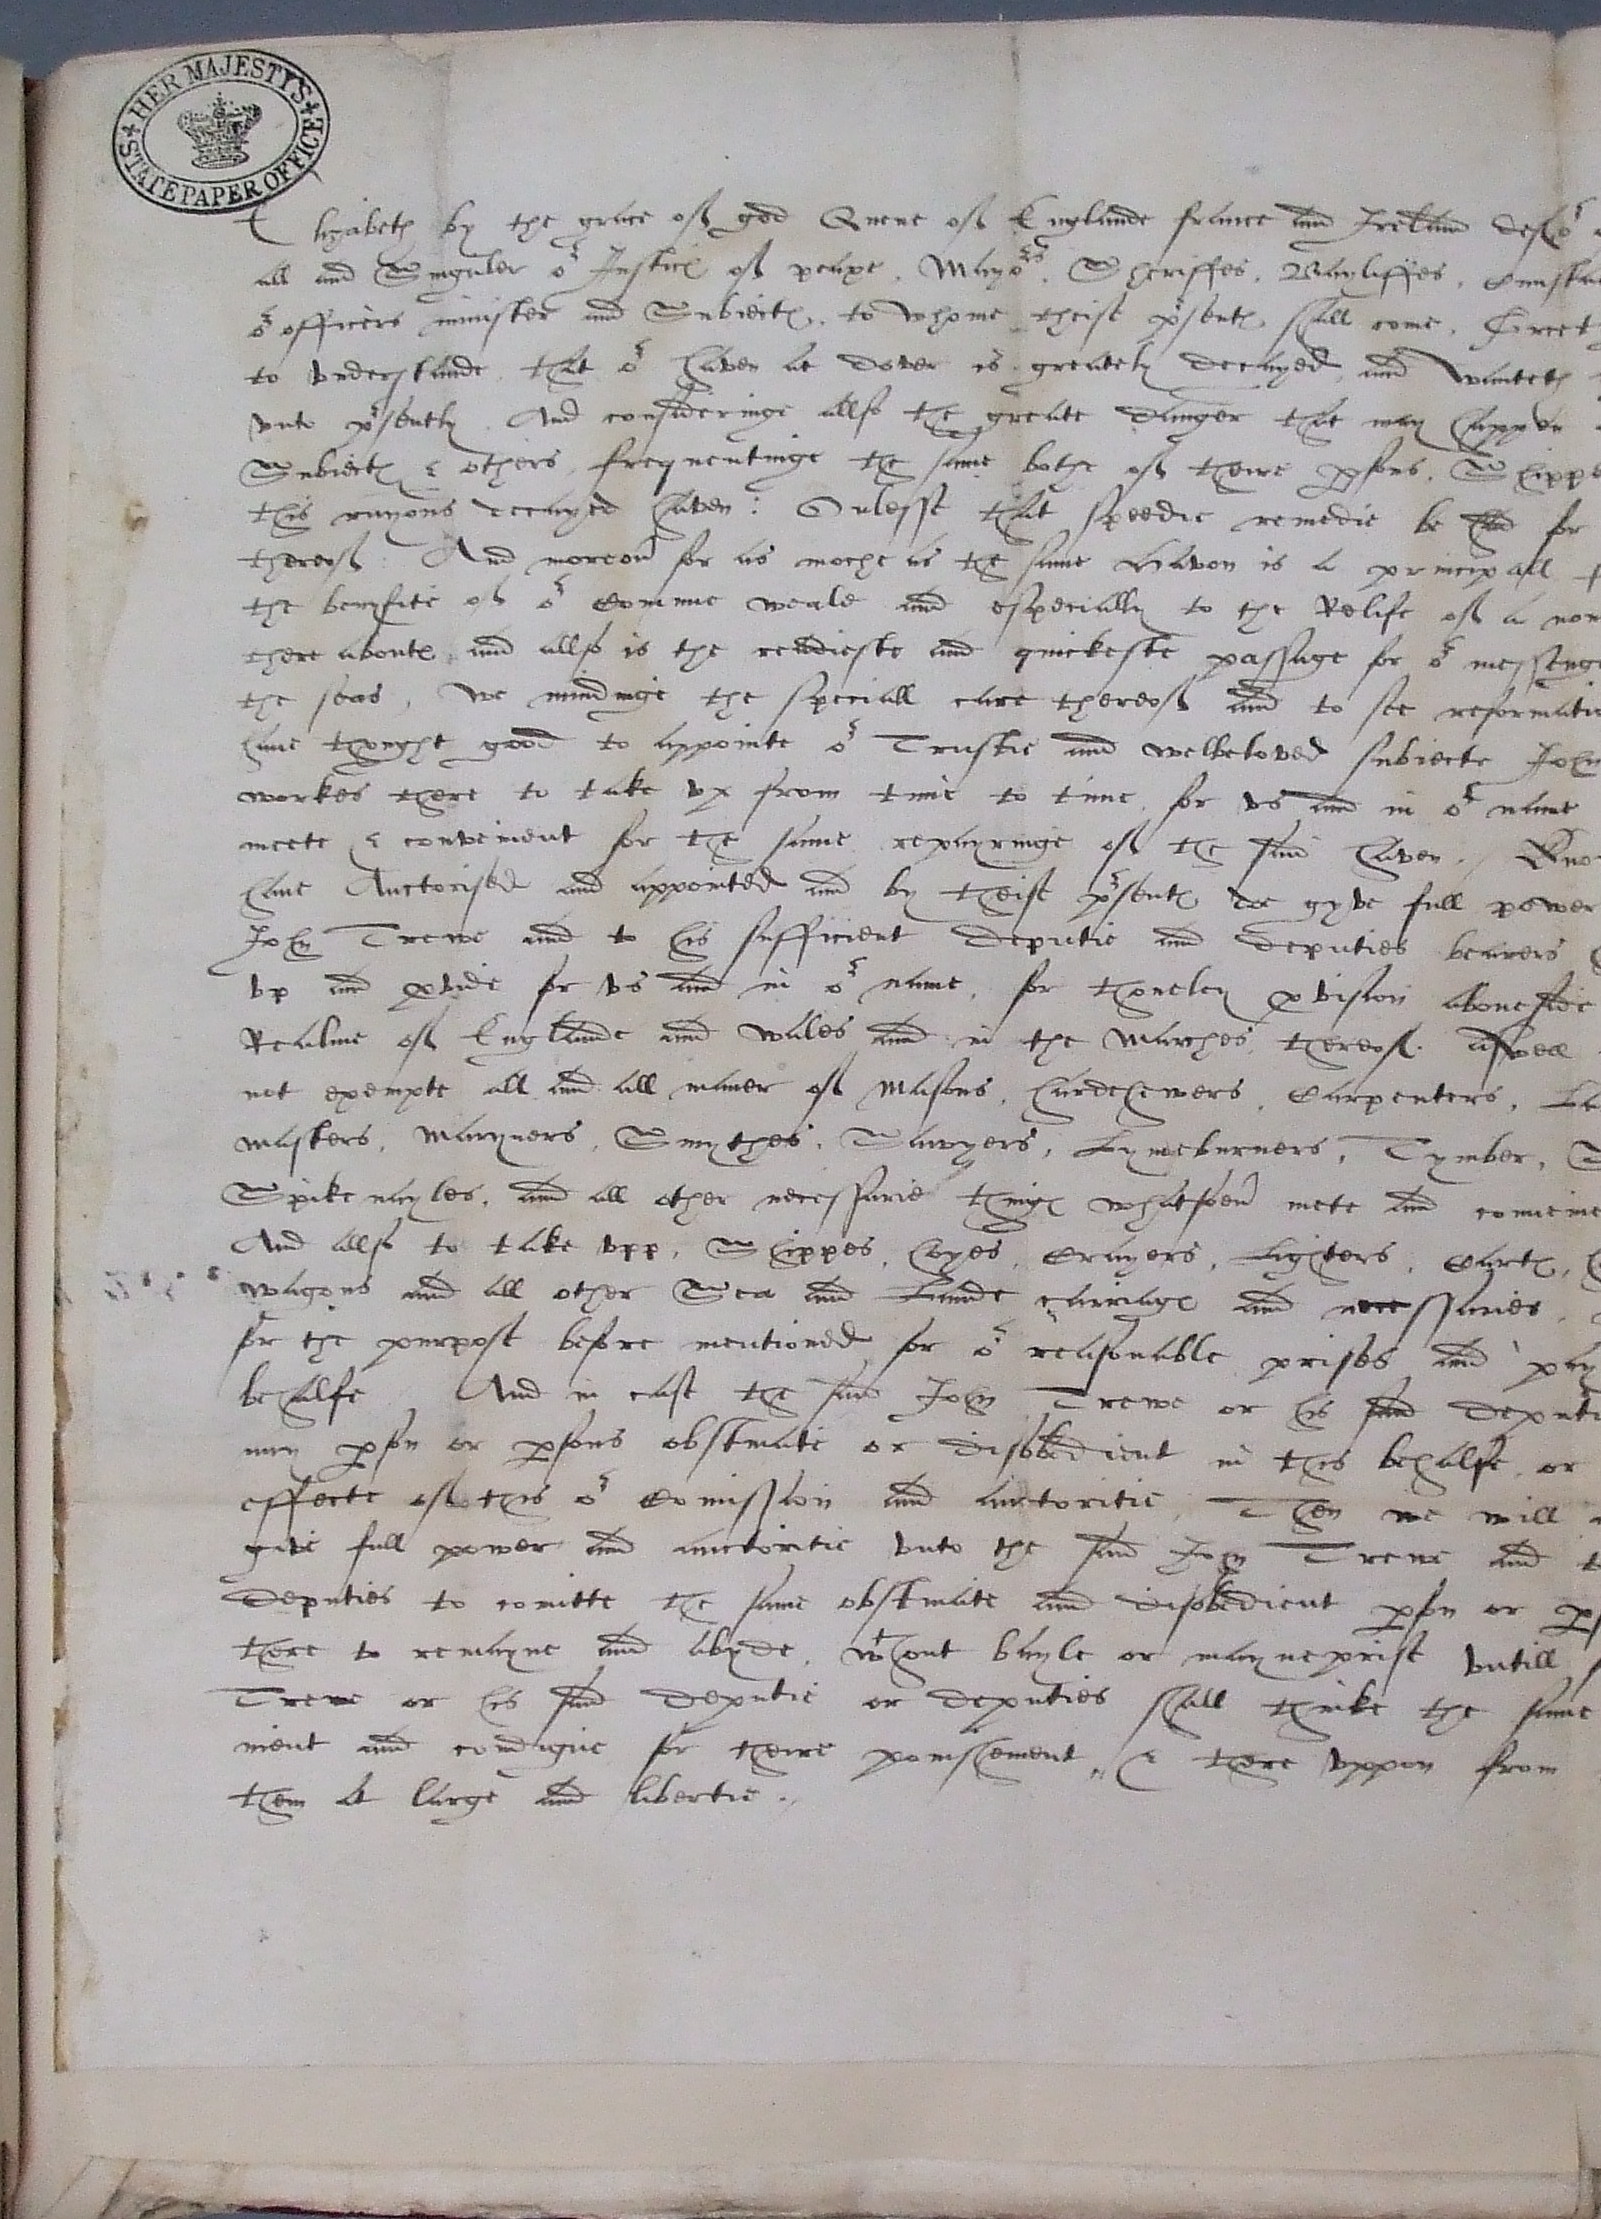 HER MAJESTY'S
STATE PAPER OFFICE
Elizabeth by the grace off god Quene off Englande france and Ireland deffo^r
all and Singuler o^r Justic(es) off peaxe, Mayo^rs, Sheriffes, Bayliffes, Cunsta
o^r officers minister and Subiect(es), to whome theise p^rsent(es) shall come, Greet
to vnderstande that o^r haven at dover is greately decayed, and wanteth
vnto p^rsently. And consideringe allso the greate dainger that may happen
Subiect(es) & others frequentinge the same bothe off theire p(er)sons, Shippe
this ruyous decayed haven: Onlesse that speedie remedie be had for
thereoff: And moreou(er) for as moche as the same Havon is a principall
the benyfite off o^r Comme weale and especially to the Relife off a nom
there about(es), and allso is the readieste and quickeste passage for o^r messenge
the seas, We mindinge the speciall care thereoff and to see reformatio
haue thought good to appointe o^r Trustie and welbeloved subiecte John
workes there to take vp from time to time for vs and in o^r name
meete & convenient for the same repayringe off the said haven, Kno
haue Auctorised and appointed and by theise p^rsent(es) doe gyve full power
John Trewe and to his sufficient deputie and deputies bearers
vp and p(ro)vide for vs and in o^r name, for thonely p(ro)vision abouesaie
Realme off Englande and wales and in the Marches thereoff. aswell
not exempte all and all maner off Masons, hardehewers, Carpenters, La
masters, Maryners, Smythes, Sawyers, Lymeburners, Tymber, S
Spike nayles, and all other necessarie thing(es) whatsoeu(er) mete and convenie
And allso to take vpp, Shippes, hoyes, Crayers, Lighters, Cart(es),
wagons and all other Sea and Lande carriag(es) and necessaries,
for the purpose before mentioned for o^r reasonable prises and pay
behalfe And in case the said John Trewe or his said deputi
any p(er)son or p(er)sons obstinate or disobedient in this behalfe, or
effecte off this o^r Comission and auctoritie, Then we will
give full power and auctoritie vnto the said John Trewe and t
deputies to comitte the same obstinate and disobedient p(er)son or p(er)s
there to remayne and abyde, w^thout bayle or mayneprise vntill
Trewe or his said deputie or deputies shall thinke the same
nient and condigne for theire ponishement, & there vppon from
them at large and libertie.